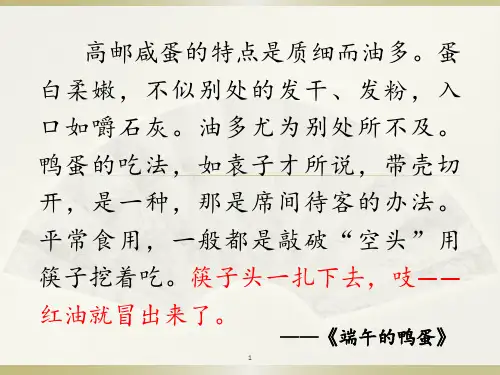 高邮咸蛋的特点是质细而油多。蛋
白柔嫩，不似别处的发干、发粉，入
口如嚼石灰。油多尤为别处所不及。
鸭蛋的吃法，如袁子才所说，带壳切
开，是一种，那是席间待客的办法。
平常食用，一般都是敲破“空头”用
筷子挖着吃。筷子头一扎下去，吱——
红油就冒出来了。
——《端午的鸭蛋》
1